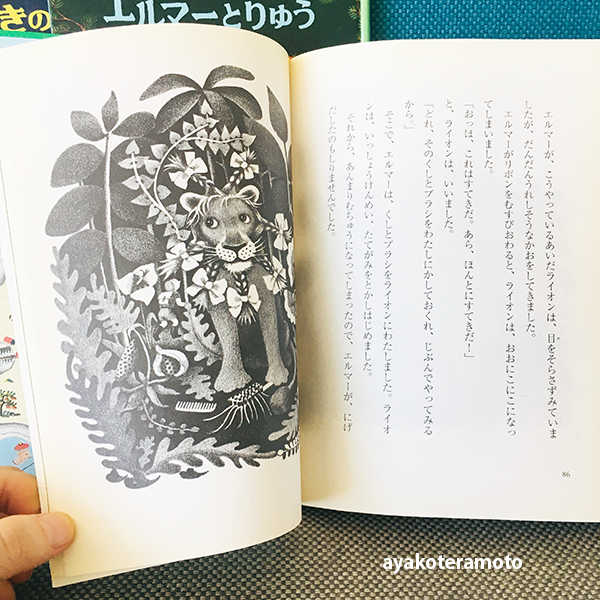 きの
エルマーとりゅう
エルマーが、こうやっているあいだライオンは、目をそらさずみていま
したが、だんだんうれしそうなかおをしてきました。
エルマーがリボンをむすびおわると、ライオンは、おおにこにこになっ
てしまいました。
「おっほ、これはすてきだ。あら、ほんとにすてきだ！」
と、ライオンは、いいました。
「どれ、そのくしとブラシをわたしにかしておくれ、じぶんでやってみる
から。」
そこで、エルマーは、くしとブラシをライオンにわたしました。ライオ
ンは、いっしょうけんめい、たてがみをとかしはじめました。
それから、あんまりむちゅうになってしまったので、エルマーが、にげ
だしたのもしりませんでした。
86
ayakoteramoto